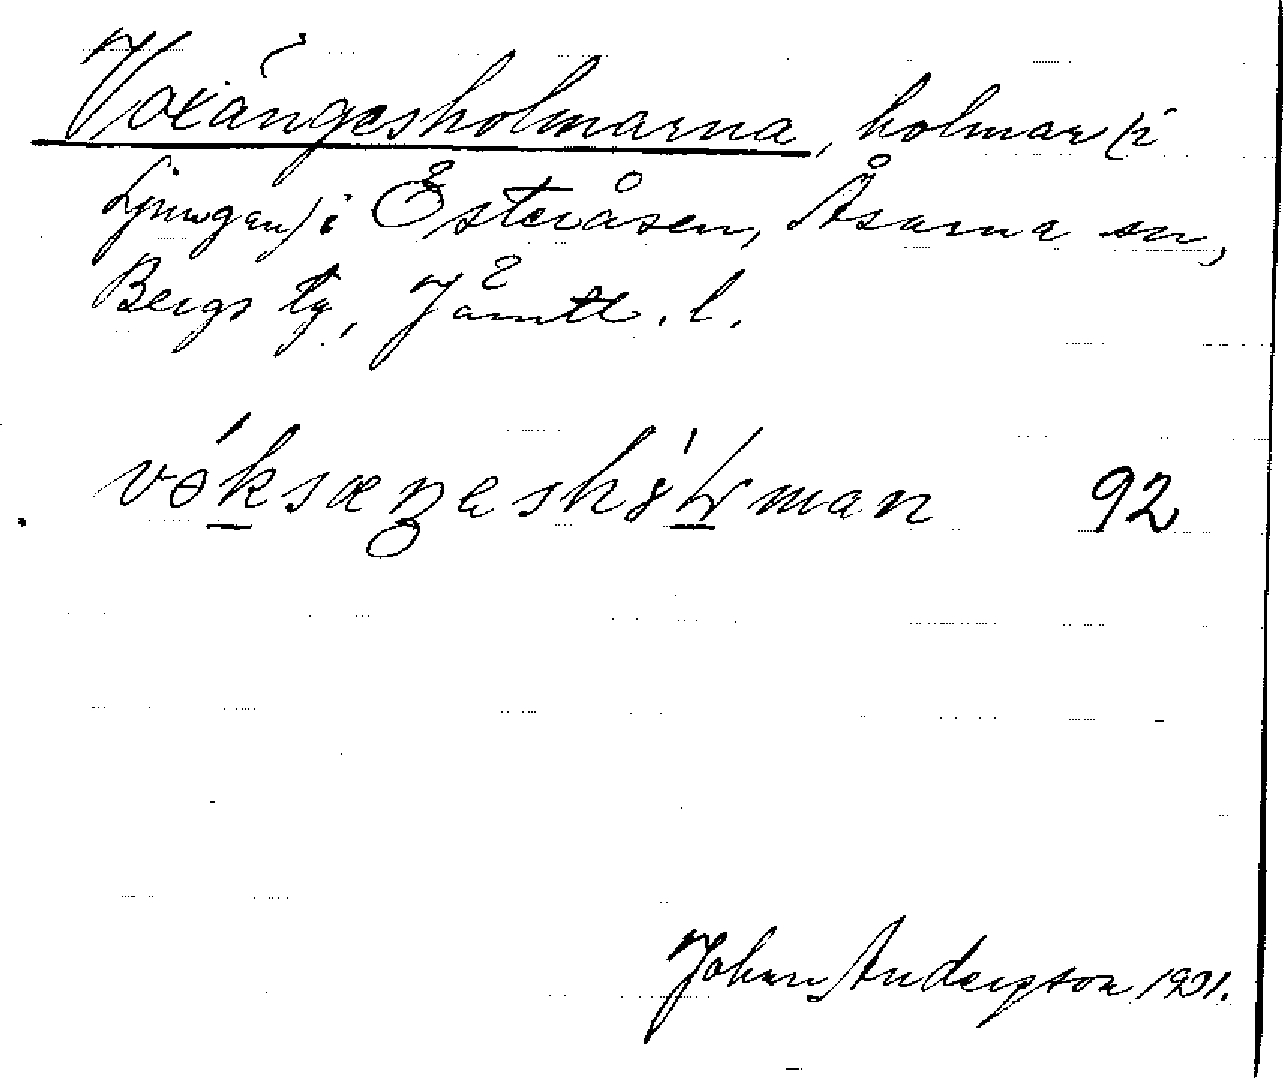 Voxängesholmarna, holmar (i
Ljungan) i Österåsen, Åsarna sn,
Bergs tg, Jämtl. l.
92
Johan Anderson 1921.